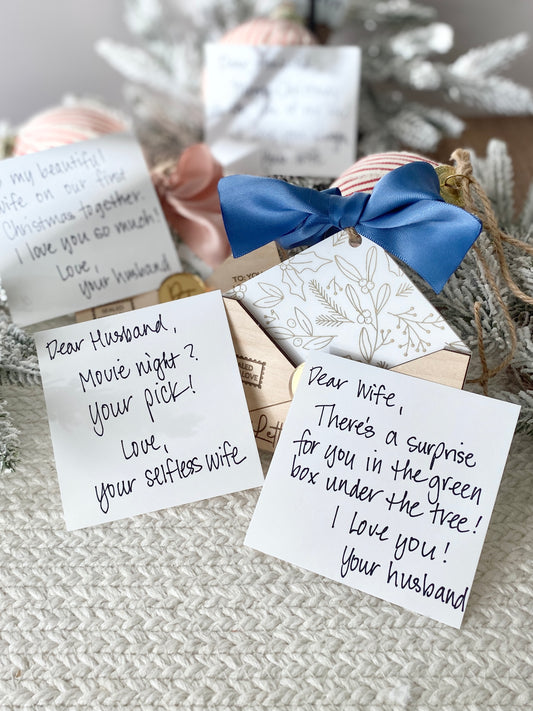 Dear
my beautiful
wife on our first
Christmas together.
I love you so much!
Love,
your husband
TO: YOU
SEALED
Dear Husband,
Movie night?
your pick!
Love,
your selfless wife
Dear Wife,
There's a surprise
for you in the green
box under the tree!
I love you!
your husband